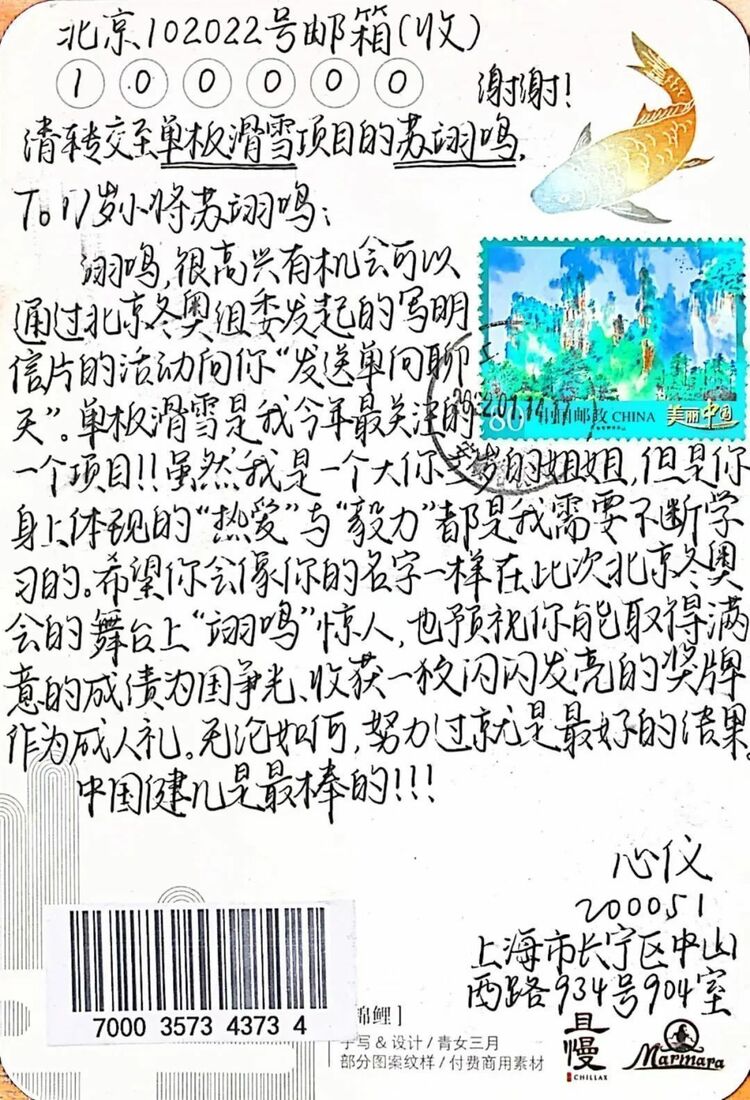 北京102022号邮箱(收)
100000 谢谢!
请转交至单板滑雪项目的苏翊鸣.
To 17岁小将苏翊鸣:
翊鸣,很高兴有机会可以
通过北京冬奥组委发起的写明
信片的活动向你“发送单向聊
天”。单板滑雪是我今年最关注的
80 中国邮政 CHINA 美丽中国
一个项目!!虽然我是一个大你 岁的姐姐,但是你
身上体现的“热爱”与“毅力”都是我需要不断学
习的。希望你会像你的名字一样在此次北京冬奥
会的舞台上“翊鸣”惊人,也预祝你能取得满
意的成绩为国争光、收获一枚闪闪发亮的奖牌
作为成人礼。无论如何,努力过就是最好的结果。
中国健儿是最棒的!!!
心仪
200051
上海市长宁区中山
西路934号904室
7000 3573 4373 4
锦鲤]
手写&设计/青女三月
部分图案纹样/付费商用素材
且慢
CHILLAX
Marmara